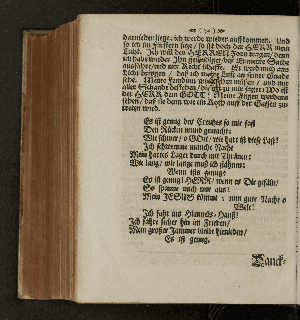 darnieder liege, ich werde wieder auffkommen. Und
so ich im finstern sitze / so ist doch der HERR mein
Licht. Ich will des HERRN Zorn tragen / denn
ich habe wieder Ihn gesündiget / bis Er meine Sache
ausführe / und mir Recht schaffe. Er wird mich ans
Licht bringen / daß ich meine Lust an seiner Gnade
sehe. Meine Feindin wird sehen müssen / und mit
aller Schande bestehen / die itzt zu mir saget: Wo ist
der HERR dein GOTT? Meine Augen werdens
sehen / daß sie denn wie ein Koth auff der Gassen zu-
treten wird.
Es ist genug des Creutzes so mir fast
Den Rücken wund gemacht:
Wie schwer / o GOtt / wie hart ist diese Last!
Ich schwemme manche Nacht
Mein hartes Lager durch mit Thränen:
Wie lang / wie lange muß ich sehnen:
Wenn ists genug?
Es ist genug! HERR / wenn es Dir gefällt /
So spanne mich nur aus!
Mein JESUS kömmt: nun gute Nacht o
Welt!
Ich fahr ins Himmels-Hauß!
Ich fahre sicher hin im Frieden /
Mein großer Jammer bleibt hienieden /
Es ist genug.
Danck-